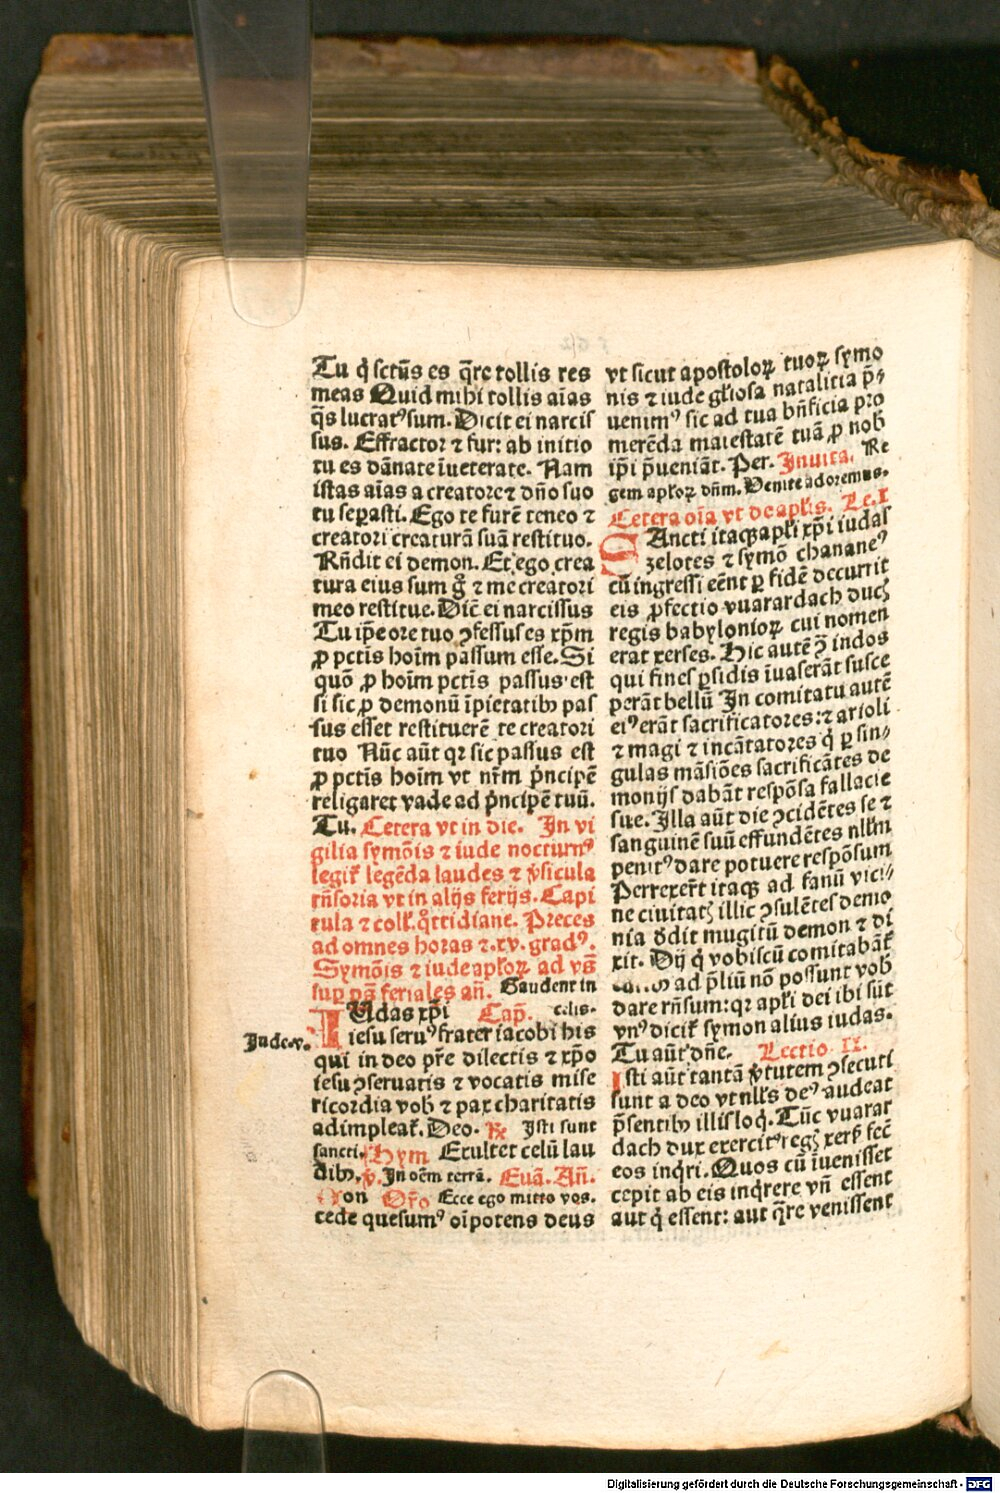 Tu q̇ sctūs es q̄re tollis res
meas Quid mihi tollis aīas
q̄s lucratꝰ sum. Dicit ei narcis
sus. Effractor ⁊ fur: ab initio
tu es dānate īueterate. Nam
istas aīas a creatore ⁊ dño suo
tu sepasti. Ego te furē teneo ⁊
creatori creaturā suā restituo.
Rñdit ei demon. Et ego crea
tura eius sum g̊ ⁊ me creatori
meo restitue. Dic̄ ei narcissus
Tu ip̄e ore tuo ꝯfessus es xp̄m
ꝓ pctis hoīm passum esse. Si
quō ꝓ hoīm pctis passus est
si sic ꝓ demonū īpietatibꝰ pas
sus esset restituerē te creatori
tuo Nūc aūt qꝛ sic passus est
ꝓ pctis hoīm vt nr̄m pͥncipē
religaret vade ad pͥncipē tuū.
Tu. Cetera vt in die. In vi
gilia symōis ⁊ iude nocturnꝰ
legit̄ legēda laudes ⁊ v̓sicula
rñsoria vt in alijs ferijs. Capi
tula ⁊ coll̄. q̊ttidiane. Preces
ad omnes horas ⁊.xv. gradꝰ.
Symōis ⁊ iude apl̄oꝝ ad vs̄
sup ps̄ feriales añ. Gaudent in
celis.
IUdas xp̄i Cap̄.
Jude.v.
iesu seruꝰ frater iacobi his
qui in deo pr̄e dilectis ⁊ xp̄o
iesu ꝯseruatis ⁊ vocatis mise
ricordia vob̄ ⁊ pax charitatis
adimpleat̄. Deo. ℟ Isti sunt
sancti. Hym Exultet celū lau
dibꝰ. ℣. In oēm terrā. Euā. Añ.
Non Or̄o Ecce ego mitto vos.
cede quesumꝰ oīpotens deus
vt sicut apostoloꝝ tuoꝝ symo
nis ⁊ iude gl̄iosa natalitia p̄-
uenimꝰ sic ad tua bñficia pro
merēda maiestatē tuā ꝓ nob̄
ip̄i p̄ueniāt. Per. Inuita. Re
gem apl̄oꝝ dñm. Venite adoremus.
Cetera oīa vt de apl̄is. Le.I
SAncti itaqꝫ apl̄i xp̄i iudas
zelotes ⁊ symō chananeꝰ
cū ingressi eēnt ꝑ fidē occurrit
eis ꝓfectio vuarardach ducꝭ
regis babylonioꝝ cui nomen
erat xerses. Hic autē ꝯ̄ indos
qui fines ꝑsidis īuaserāt susce
perāt bellū In comitatu autē
eiꝰ erāt sacrificatores: ⁊ arioli
⁊ magi ⁊ incātatores q̇ ꝑ sin-
gulas māsiōes sacrificātes de
monijs dabāt respōsa fallacie
sue. Illa aūt die ꝯcidētes se ⁊
sanguinē suū effundētes nll̄m
penitꝰ dare potuere respōsum
Perrexer̄t itaqꝫ ad fanū vici-
ne ciuitatꝭ illic ꝯsulētes demo
nia ꝺ̄dit mugitū demon ⁊ di
xit. Dij q̇ vobiscū comitabāt̄
ad p̄liū nō possunt vob̄
dare rñsum: qꝛ apl̄i dei ibi sūt
vnꝰ dicit̄ symon alius iudas.
Tu aūt dñe. Lectio II.
Isti aūt tantā v̓tutem ꝯsecuti
sunt a deo vt nll̄s deꝰ audeat
p̄sentibꝰ illis loq̇. Tūc vuarar
dach dux exercitꝰ regꝭ xerꝭ fec̄
eos inq̇ri. Quos cū īuenisset
cepit ab eis inq̇rere vñ essent
aut q̇ essent: aut q̄re venissent